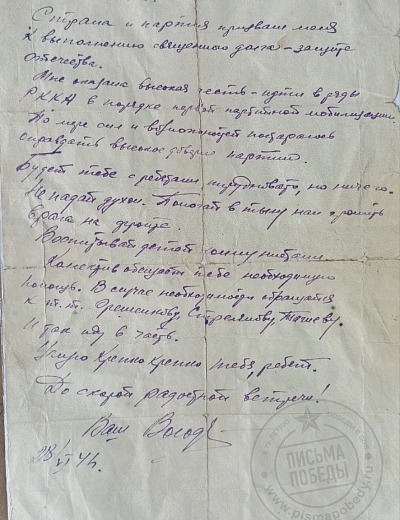 Страна и партия призвали меня
к выполнению священного долга – защите
отечества.
Мне оказана высокая честь – идти в ряды
РККА в порядке первой партийной мобилизации.
По мере сил и возможностей постараюсь
оправдать высокое доверие партии.
Будет тебе с ребятами трудновато, но ничего.
Не падай духом. Помогай в тылу нам громить
врага на фронте.
Воспитывай детей коммунистами.
Коллектив обещает тебе необходимую
помощь. В случае необходимости обращайся
к т.т. Орешникову, Стрелкину, Ташеву.
Итак иду в часть.
Целую крепко крепко тебя, ребят.
До скорой радостной встречи!
Ваш Володя
28/VI 41.
ПИСЬМА
ПОБЕДЫ
www.pismapobedy.ru